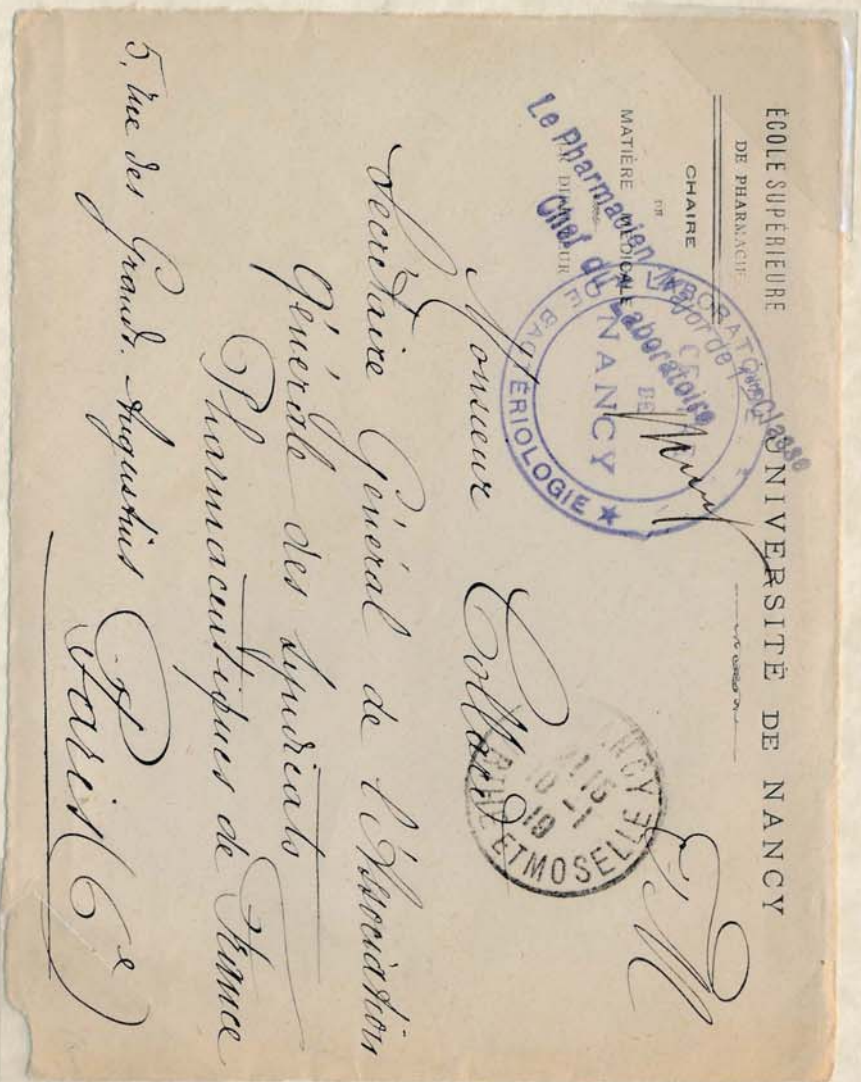 UNIVERSITÉ DE NANCY
ÉCOLE SUPÉRIEURE
DE PHARMACIE
CHAIRE
DE
MATIÈRE MÉDICALE
Le Pharmacien Major de 1ère Classe
Chef du Laboratoire
LABORATOIRE DE BACTÉRIOLOGIE ★
DE
NANCY
F M
NANCY
21 15
10 - 1
19
MTHE ET MOSELLE
Monsieur Collard
Secrétaire Général de l'Association
Générale des Syndicats
Pharmaceutiques de France
5, rue des Grands-Augustins Paris (6e)